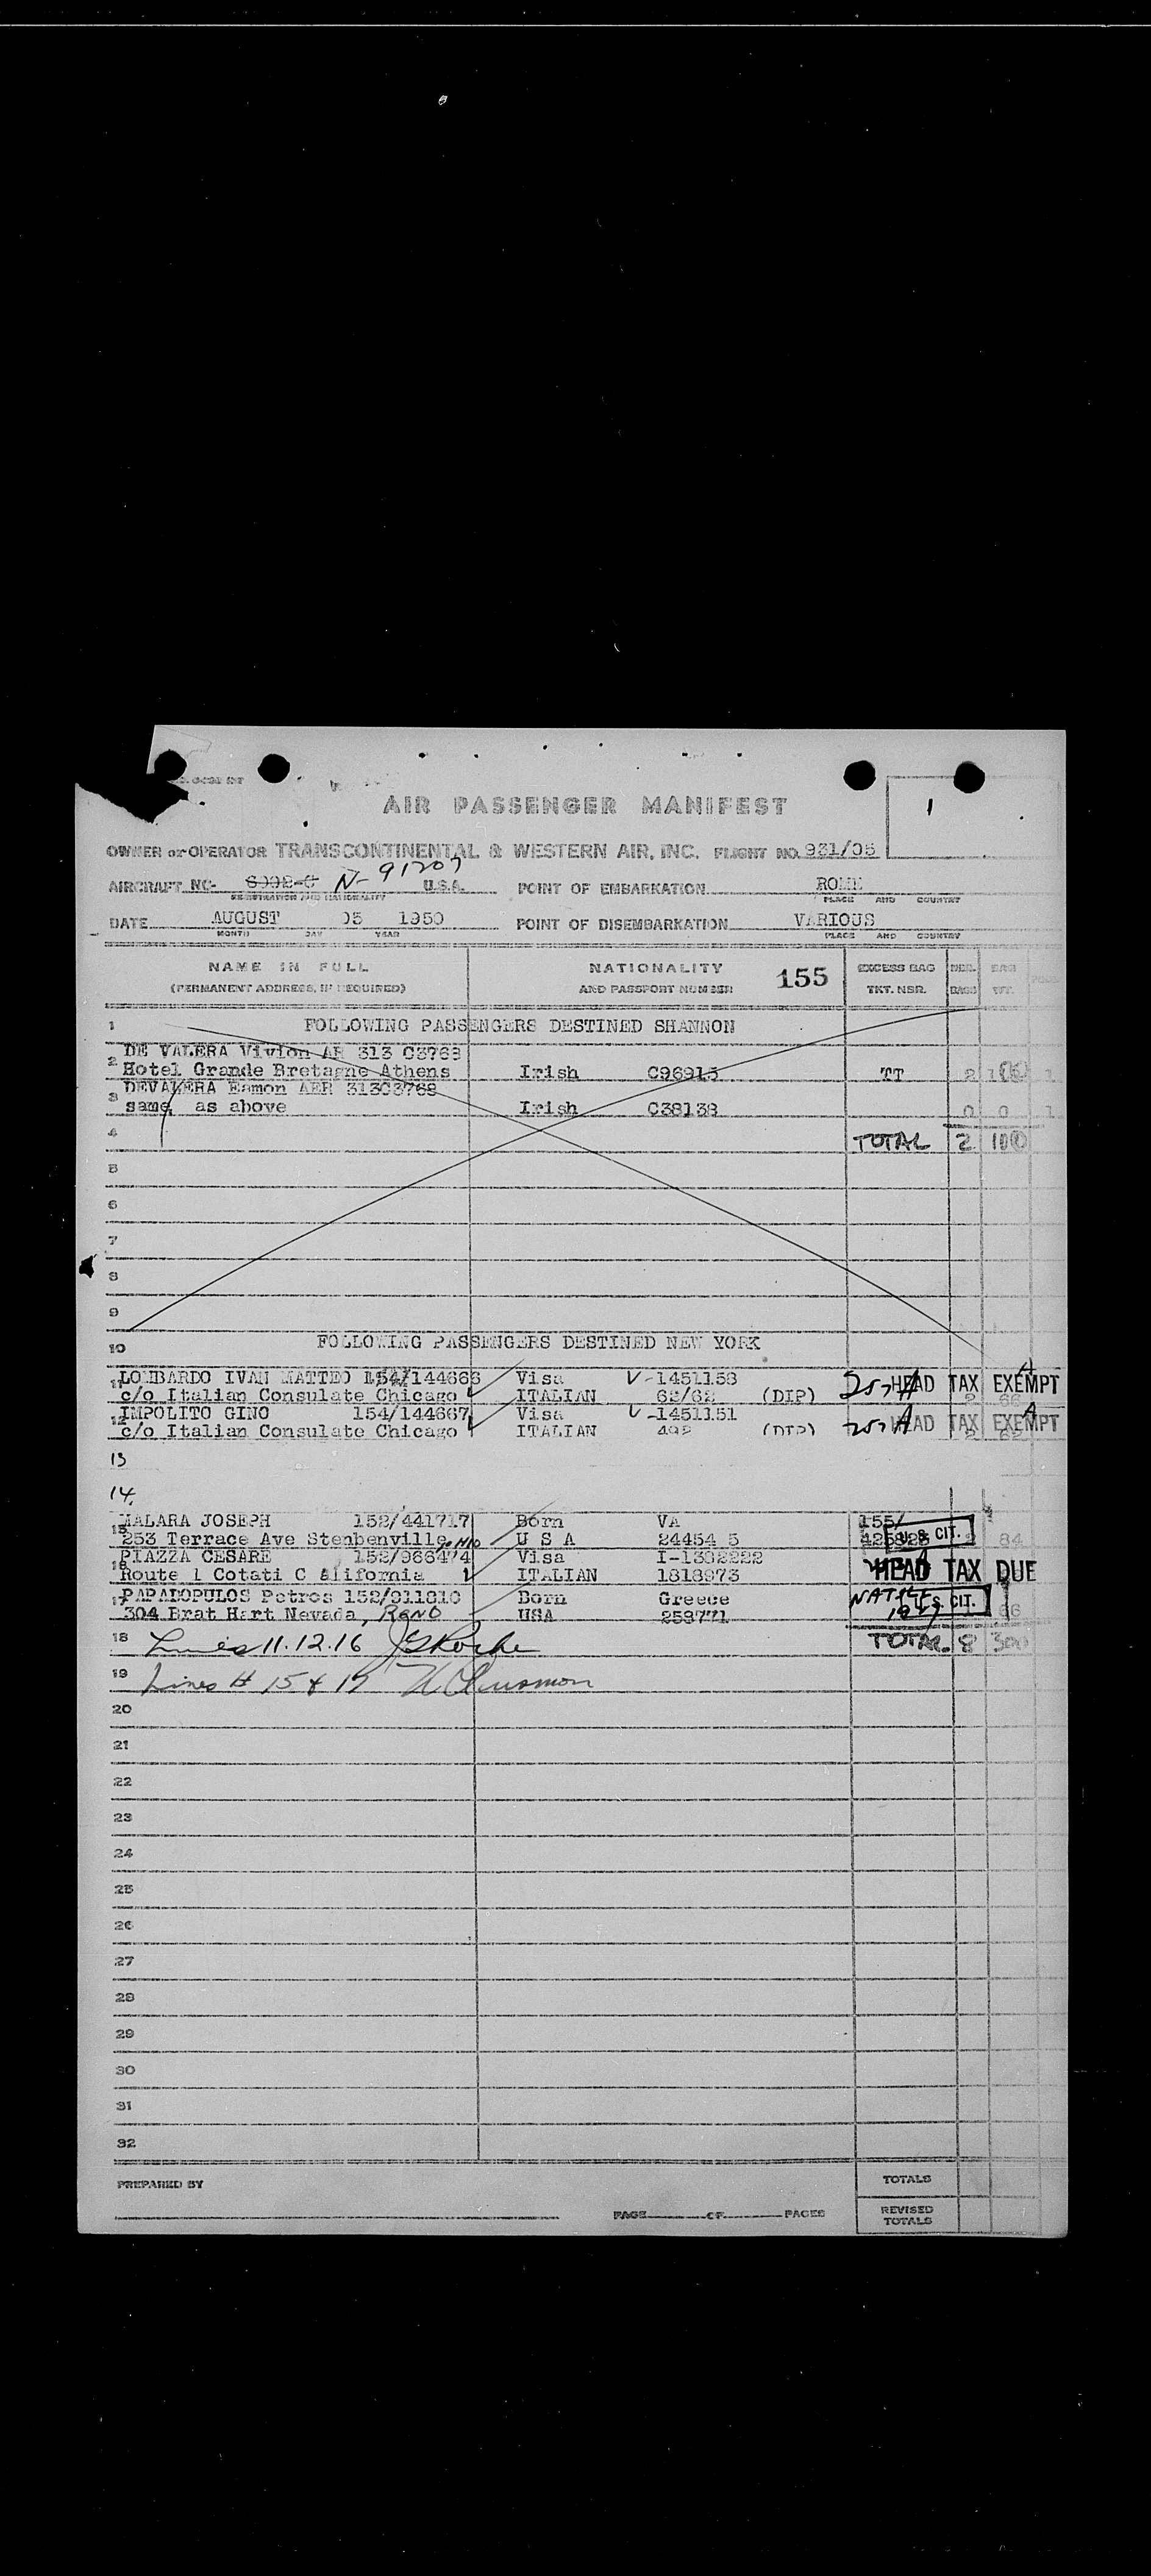 AIR PASSENGER MANIFEST
1
OWNER or OPERATOR TRANSCONTINENTAL & WESTERN AIR, INC. FLIGHT NO. 931/05
AIRCRAFT NO. N-91207 U.S.A. POINT OF EMBARKATION ROME
REGISTRATION AND NATIONALITY PLACE AND COUNTRY
DATE AUGUST 05 1950 POINT OF DISEMBARKATION VARIOUS
MONTH DAY YEAR PLACE AND COUNTRY
NAME IN FULL NATIONALITY 155 EXCESS BAG NBR. BAG
(PERMANENT ADDRESS, IF REQUIRED) AND PASSPORT NUMBER TKT. NBR. BAGS WT.
1 FOLLOWING PASSENGERS DESTINED SHANNON
DE VALERA Vivion AR 313 03768
2 Hotel Grande Bretagne Athens Irish C96915 TT 2 1
DEVALERA Eamon AER 31303768
3 same as above Irish C38138 0 0 1
4 TOTAL 2 100
5
6
7
8
9
10 FOLLOWING PASSENGERS DESTINED NEW YORK
LOMBARDO IVAN MATTEO 154/144668 Visa V-1451158
11 c/o Italian Consulate Chicago ITALIAN 62/62 (DIP) HEAD TAX EXEMPT
IMPOLITO GINO 154/144667 Visa V-1451151
12 c/o Italian Consulate Chicago ITALIAN 492 (DIP) HEAD TAX EXEMPT
13
14.
MALARA JOSEPH 152/441717 Born VA 155/
15 253 Terrace Ave Stenbenville, OHIO U S A 24454 5 U.S. CIT. 84
PIAZZA CESARE 152/966474 Visa I-1382222
16 Route 1 Cotati C Alifornia ITALIAN 1818973 HEAD TAX DUE
PAPADOPULOS Petros 152/911810 Born Greece
17 304 Brat Hart Nevada, RENO USA 259771 U.S. CIT. 66
18 Lines 11.12.16 TOTAL 8 300
19 Lines # 15 & 17
20
21
22
23
24
25
26
27
28
29
30
31
32
PREPARED BY TOTALS
PAGE OF PAGES REVISED TOTALS